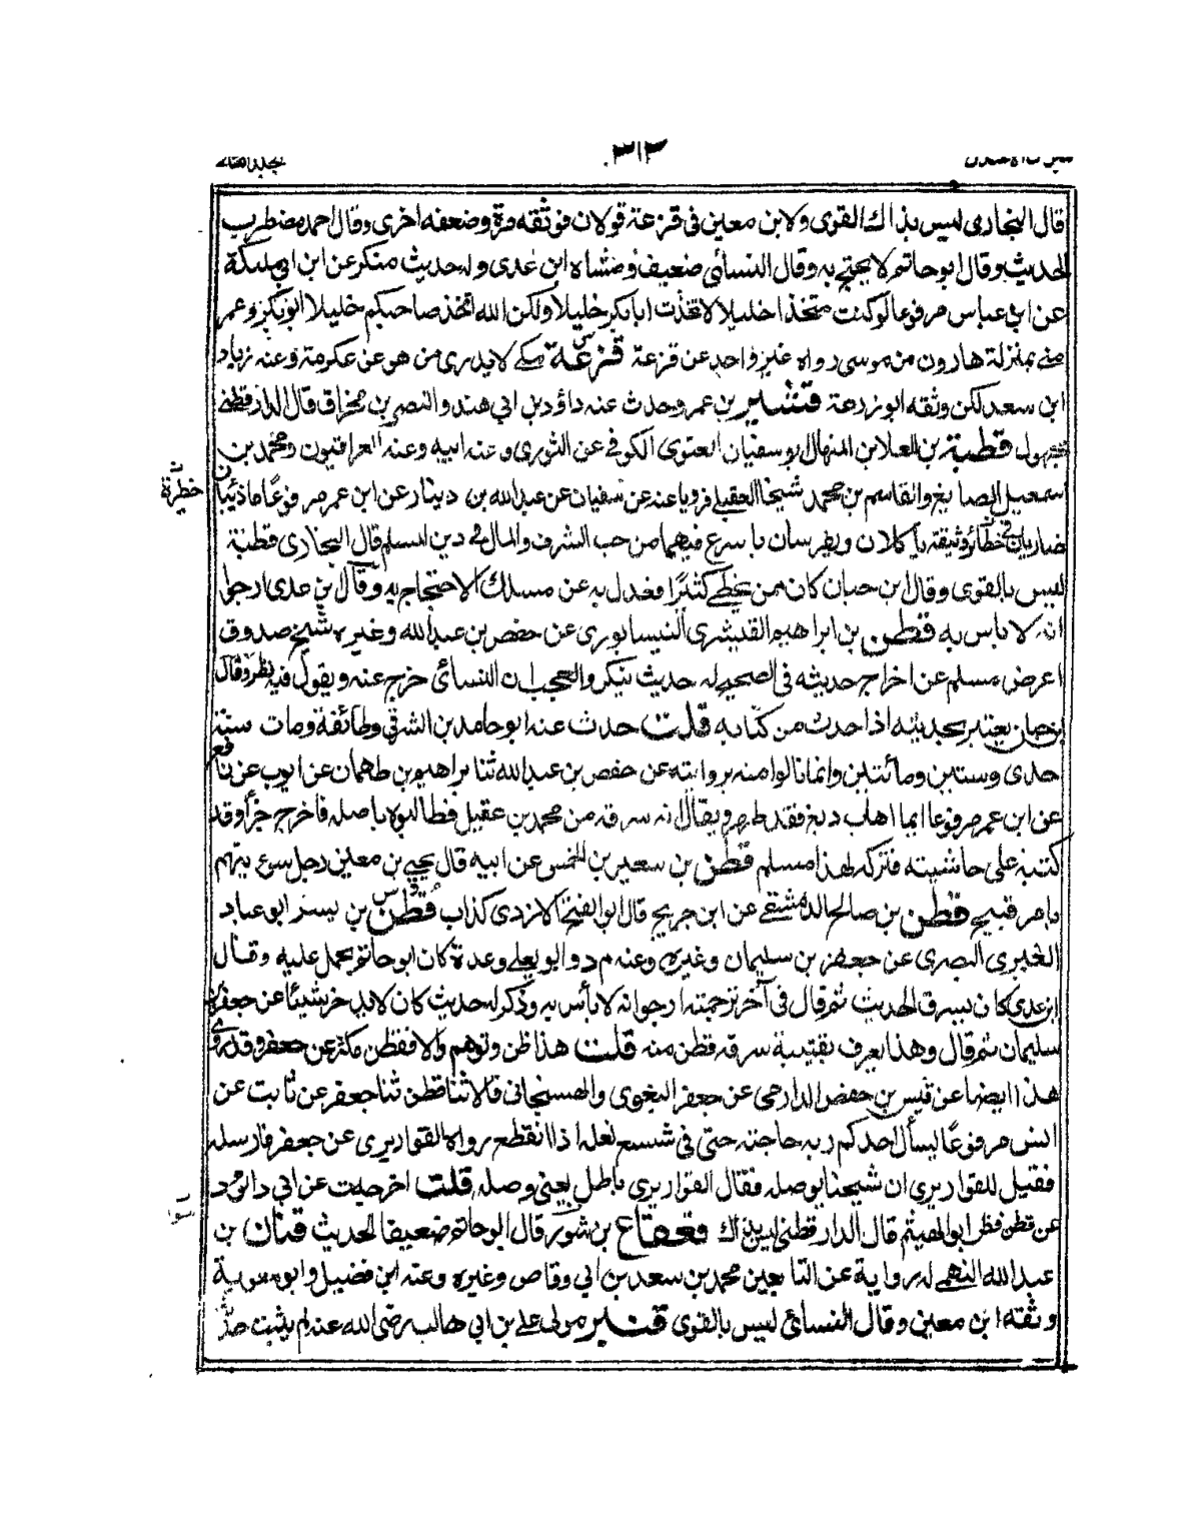 ٣١٣
قال البخارى ليس بذاك القوى ولابن معين فى قزعة قولان فوثقه مرة وضعفه اخرى وقال احمد مضطرب
الحديث وقال ابو حاتم لا يحتج به وقال النسائى ضعيف ومشاه ابن عدى وله حديث منكر عن ابن ابى مليكة
عن ابن عباس مرفوعا لو كنت متخذا خليلا لاتخذت ابا بكر خليلا ولكن الله اتخذ صاحبكم خليلا ابو بكر وعمر
منى بمنزلة هارون من موسى رواه غير واحد عن قزعة قزعة مكى لا يدرى من هو عن عكرمة وعنه زياد
ابن سعد لكن وثقه ابو زرعة قشير بن عمرو حدث عنه داؤد بن ابي هند والنضر بن مخراق قال الدارقطنى
مجهول قطبة بن العلا بن المنهال ابو سفيان الغنوى الكوفى عن الثورى وعنه ابيه وعنه العراقيون ومحمد بن
اسمعيل الصايغ والقاسم بن محمد شيخا العقيلى فرويا عنه عن سفيان عن عبد الله بن دينار عن ابن عمر مرفوعا ما ذئبان
ضاريان فى حظائر وثيقة يأكلان ويفرسان باسرع فيهما من حب الشرف والمال فى دين المسلم قال البخارى قطبة
ليس بالقوى وقال ابن حبان كان ممن يخطى كثيرا فعدل به عن مسلك الاحتجاج به وقال بن عدى ارجو
انه لا باس به قطن بن ابراهيم القشيرى النيسابورى عن حفص بن عبد الله وغيره شيخ صدوق
اعرض مسلم عن اخراج حديثه فى الصحيح له حديث ينكر والعجب ان النسائى خرج عنه ويقول فيه نظر وقال
ابن حبان يعتبر بحديثه اذا حدث من كتابه قلت حدث عنه ابو حامد بن الشرقى وطائفة ومات سنة
حدى وستين ومائتين وانما نالوا منه بروايته عن حفص بن عبد الله ثنا ابراهيم بن طهمان عن ايوب عن نافع
عن ابن عمر مرفوعا ايما اهاب دبغ فقد طهر ويقال انه سرقه من محمد بن عقيل فطالبوه باصله فاخرج جزأ وقد
كتبه على حاشيته فتركه لهذا مسلم قطن بن سعير بن الخمس عن ابيه قال يحيى بن معين رجل سوء يتهم
بامر قبيح قطن بن صالح الدمشقى عن ابن جريج قال ابو الفتح الازدى كذاب قطن بن يسير ابو عباد
الغبرى البصرى عن جعفر بن سليمان وغيره وعنه م د وابو يعلى وعدة كان ابو حاتم يحمل عليه وقال
ابن عدى كان يسرق الحديث ثم قال فى آخر ترجمته ارجو انه لا بأس به وذكر له حديث كان لا يدخر شيئا عن جعفر بن
سليمان ثم قال وهذا يعرف بقتيبة سرقه قطن منه قلت هذا ظن وتوهم والا فقطن مكثر عن جعفر وقد روى
هذا ايضا عن قيس بن حفص الدارمى عن جعفر البغوى والهسنجانى قالا ثنا قطن ثنا جعفر عن ثابت عن
انس مرفوعا ليسأل احدكم ربه حاجته حتى فى شسع نعله اذا انقطع رواه القواريرى عن جعفر فارسله
فقيل للقواريرى ان شيخنا يوصله فقال القواريرى باطل يعنى وصله قلت اخرجت عن ابي دائود
عن قطن قعقاع بن شور قال ابو حاتم ضعيف الحديث قنان بن
عبد الله النهمى له رواية عن التابعين محمد بن سعد بن ابي وقاص وغيره وعنه ابن فضيل وابو معوية
وثقه ابن معين وقال النسائى ليس بالقوى قنبر مولى على بن ابى طالب رضى الله عنه لم يثبت